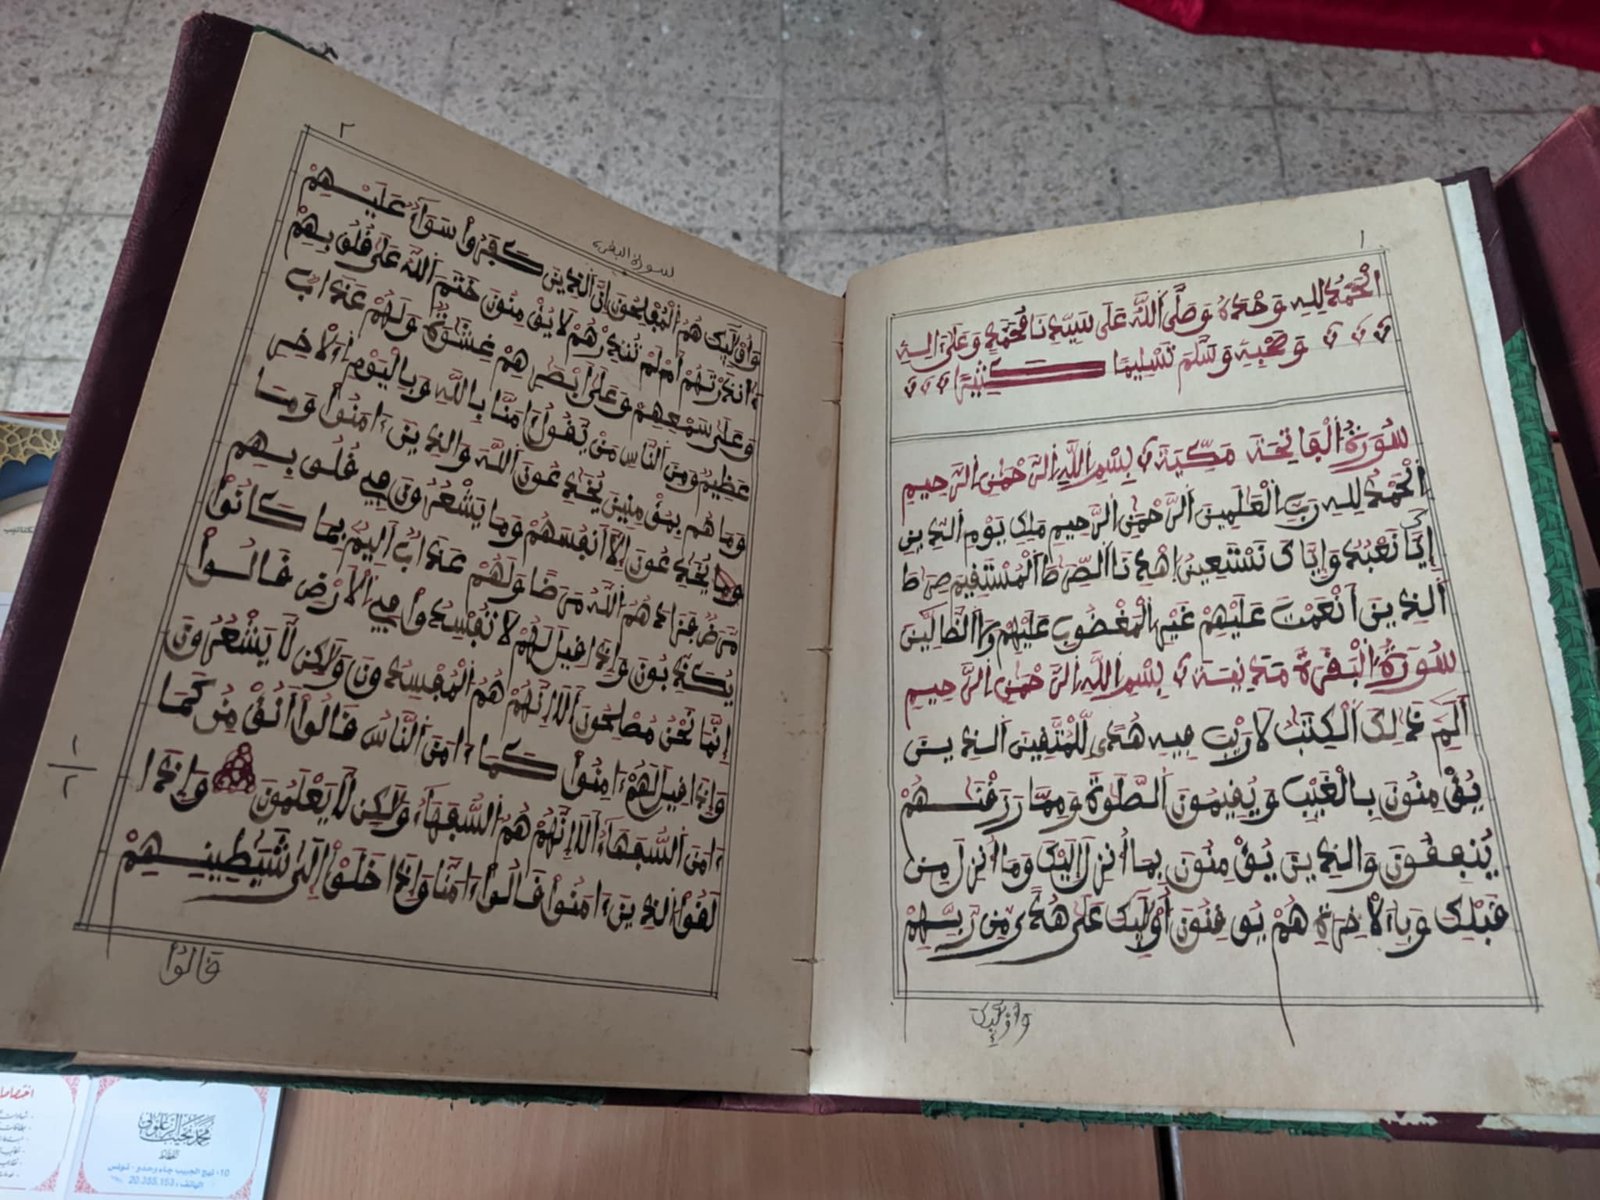 ١
الْحَمْدُ لِلهِ وَحْدَهُ وَصَلَّى اَللَّهُ عَلَى سَيِّدِنَا مُحَمَّدٍ وَعَلَى ءَالِهِ
وَصَحْبِهِ وَسَلَّمَ تَسْلِيمًا كَثِيرًا
سُورَةُ اُلْفَاتِحَة مَكِّيَة بِسْمِ اِللَّهِ اِلرَّحْمَٰنِ اِلرَّحِيمِ
اَلْحَمْدُ لِلهِ رَبِّ اِلْعَٰلَمِينَ اَلرَّحْمَٰنِ اِلرَّحِيمِ مَلِكِ يَوْمِ اِلدِّينِ
إِيَّاكَ نَعْبُدُ وَإِيَّاكَ نَسْتَعِينُ اَهْدِنَا اَلصِّرَٰطَ اَلْمُسْتَقِيمَ صِرَٰطَ
اَلذِينَ أَنْعَمْتَ عَلَيْهِمْ غَيْرِ اِلْمَغْضُوبِ عَلَيْهِمْ وَلَا اَلضَّآلِّينَ
سُورَةُ اُلْبَقَرَةِ مَدَنِيَة بِسْمِ اِللَّهِ اِلرَّحْمَٰنِ اِلرَّحِيمِ
أَلَمِّ ذَٰلِكَ اَلْكِتَٰبُ لَا رَيْبَ فِيهِ هُدًى لِّلْمُتَّقِينَ اَلذِينَ
يُؤْمِنُونَ بِالْغَيْبِ وَيُقِيمُونَ اَلصَّلَوٰةَ وَمِمَّا رَزَقْنَٰهُمْ
يُنفِقُونَ وَالذِينَ يُؤْمِنُونَ بِمَا أُنزِلَ إِلَيْكَ وَمَا أُنزِلَ مِن
قَبْلِكَ وَبِالْأَخِرَةِ هُمْ يُوقِنُونَ أُوْلَٰئِكَ عَلَىٰ هُدًى مِّن رَّبِّهِمْ
٢
سورة البقرة
وَأُوْلَٰئِكَ هُمُ اُلْمُفْلِحُونَ إِنَّ اَلذِينَ كَفَرُواْ سَوَآءٌ عَلَيْهِمْ
ءَآنذَرْتَهُمْ أَمْ لَمْ تُنذِرْهُمْ لَا يُؤْمِنُونَ خَتَمَ اَللَّهُ عَلَىٰ قُلُوبِهِمْ
وَعَلَىٰ سَمْعِهِمْ وَعَلَىٰ أَبْصَٰرِهِمْ غِشَٰوَةٌ وَلَهُمْ عَذَابٌ
عَظِيمٌ وَمِنَ اَلنَّاسِ مَنْ يَّقُولُ ءَامَنَّا بِاللَّهِ وَبِالْيَوْمِ اِلْأَخِرِ
وَمَا هُم بِمُؤْمِنِينَ يُخَٰدِعُونَ اَللَّهَ وَالذِينَ ءَامَنُواْ وَمَا
وما يُخَٰدِعُونَ إِلَّا أَنفُسَهُمْ وَمَا يَشْعُرُونَ فِي قُلُوبِهِم
مَّرَضٌ فَزَادَهُمُ اُللَّهُ مَرَضًا وَلَهُمْ عَذَابٌ أَلِيمٌ بِمَا كَانُواْ
يُكَذِّبُونَ وَإِذَا قِيلَ لَهُمْ لَا تُفْسِدُواْ فِي اِلْأَرْضِ قَالُواْ
إِنَّمَا نَحْنُ مُصْلِحُونَ أَلَا إِنَّهُمْ هُمُ اُلْمُفْسِدُونَ وَلَٰكِن لَّا يَشْعُرُونَ
وَإِذَا قِيلَ لَهُمْ ءَامِنُواْ كَمَا ءَامَنَ اَلنَّاسُ قَالُواْ أَنُؤْمِنُ كَمَا
ءَامَنَ اَلسُّفَهَآءُ أَلَا إِنَّهُمْ هُمُ اُلسُّفَهَآءُ وَلَٰكِن لَّا يَعْلَمُونَ وَإِذَا
لَقُواْ اُلذِينَ ءَامَنُواْ قَالُواْ ءَامَنَّا وَإِذَا خَلَوْاْ إِلَىٰ شَيَٰطِينِهِمْ
١
٢
قَالُواْ
محمد نجيب الزغواني
الخطاط
10، نهج الحبيب جاء وحدو - تونس
الهاتف: 20.355.153